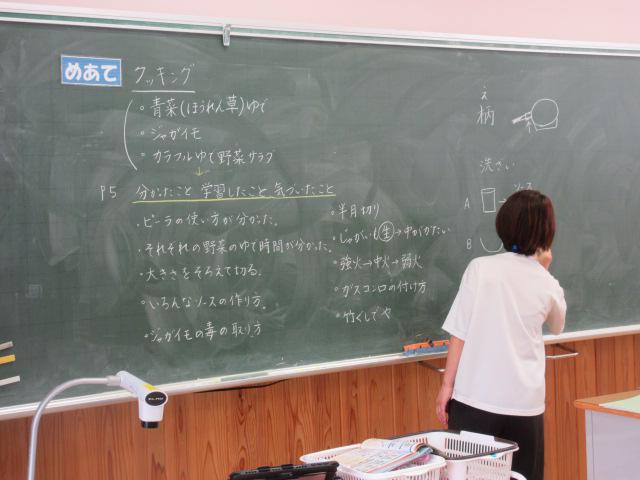 めあて
クッキング
。青菜(ほうれん草)ゆで
。ジャガイモ
。カラフルゆで野菜サラダ
↓
P5 分かったこと 学習したこと 気づいたこと
・ピーラの使い方が分かった。
・それぞれの野菜のゆで時間が分かった。
・大きさをそろえて切る。
・いろんなソースの作り方。
・ジャガイモの毒の取り方
・半月切り
・じゃがいも生→中がかたい
・強火→中火→弱火
・ガスコンロの付け方
・竹ぐしで
え
柄
洗ざい
A
ソース
B